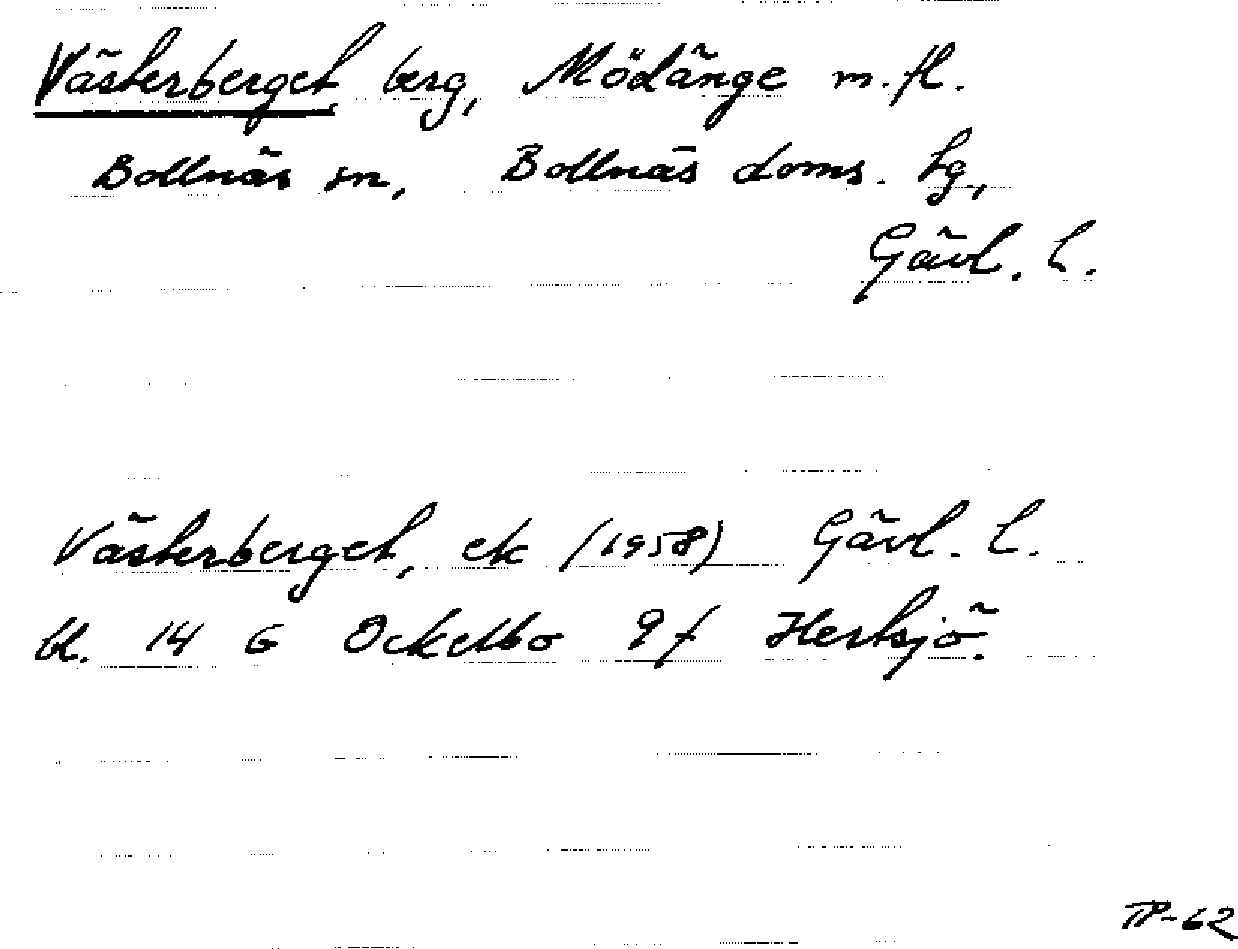 Västerberget, berg, Mödänge m.fl.
Bollnäs sn, Bollnäs doms. hg,
Gävl. l.
Västerberget, ek (1958) Gävl. l.
bl. 14 G Ockelbo 9f Hertsjö.
TP-62